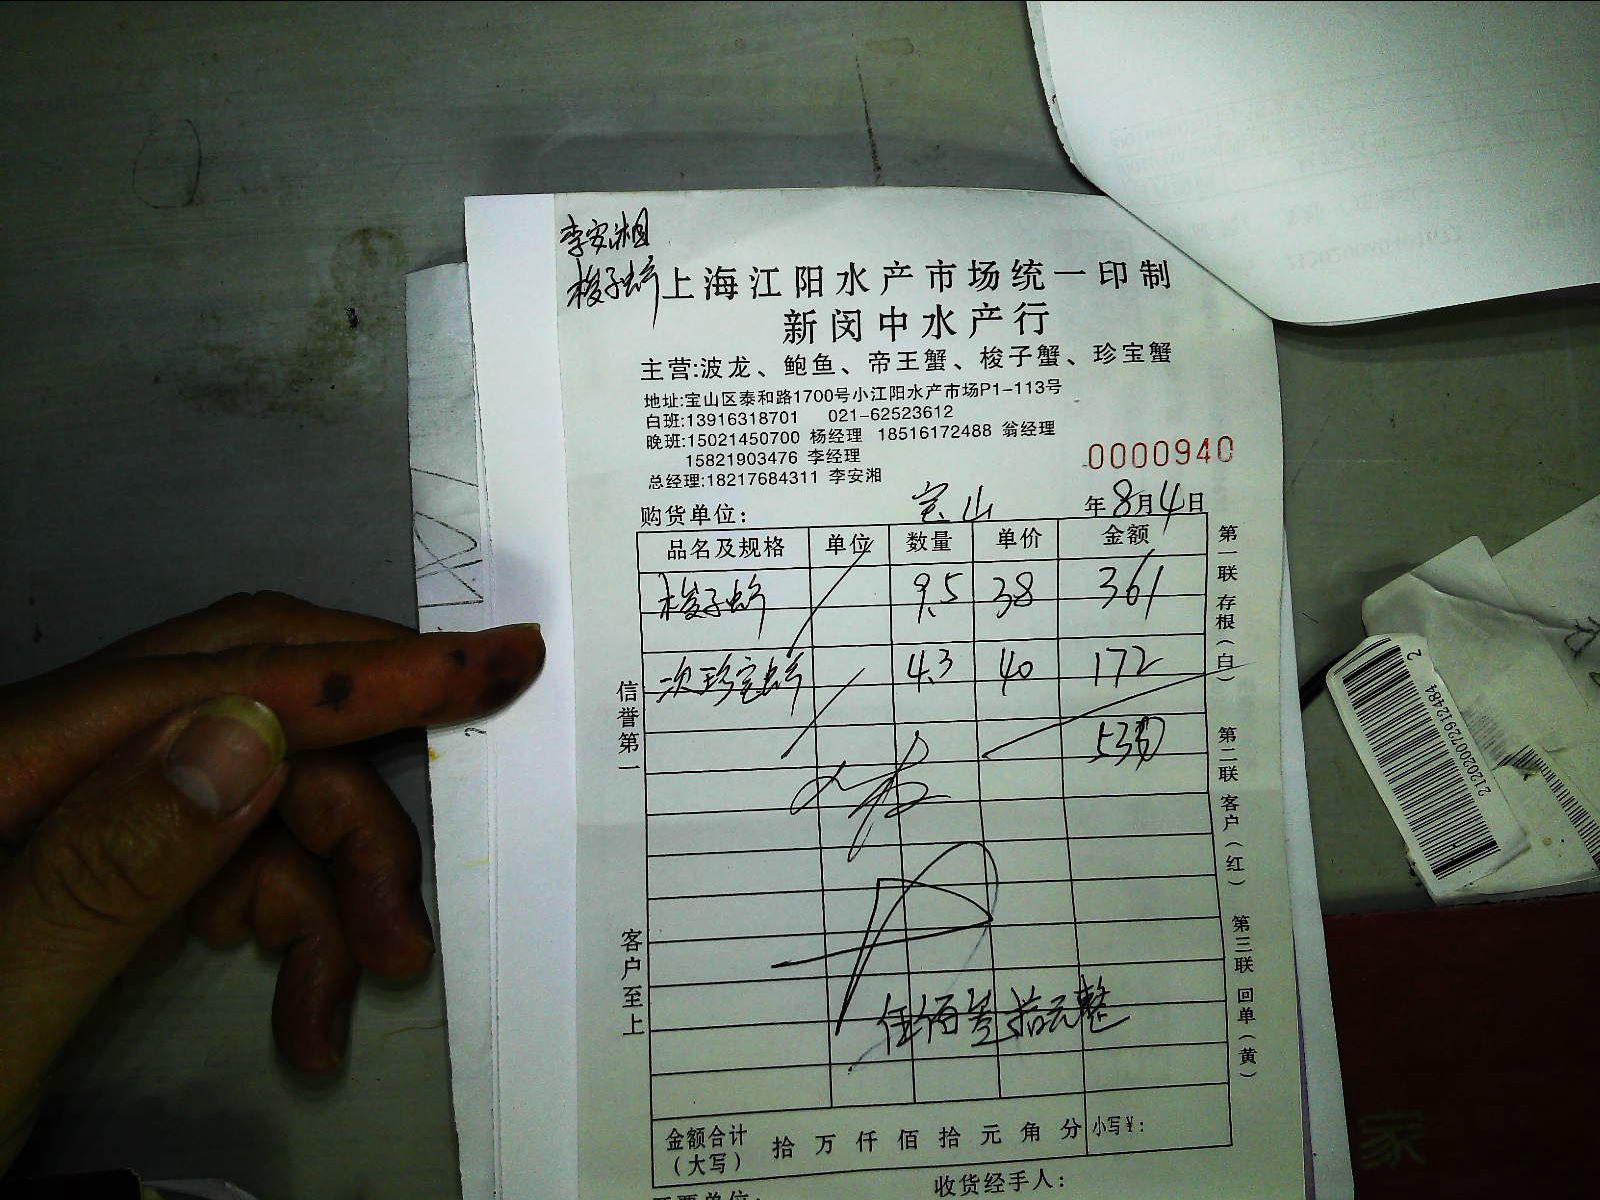 李安湘
梭子蟹
上海江阳水产市场统一印制
新闵中水产行
主营:波龙、鲍鱼、帝王蟹、梭子蟹、珍宝蟹
地址:宝山区泰和路1700号小江阳水产市场P1-113号
白班:13916318701 021-62523612
晚班:15021450700 杨经理 18516172488 翁经理
15821903476 李经理
总经理:18217684311 李安湘
0000940
购货单位: 宝山 年8月4日
品名及规格 单位 数量 单价 金额
梭子蟹 9.5 38 361
次珍宝蟹 4.3 40 172
伍佰叁拾元整
金额合计(大写) 拾 万 仟 佰 拾 元 角 分 小写¥:
收货经手人:
信誉第一
客户至上
第一联 存根(白) 第二联 客户(红) 第三联 回单(黄)
2120200729124842
家